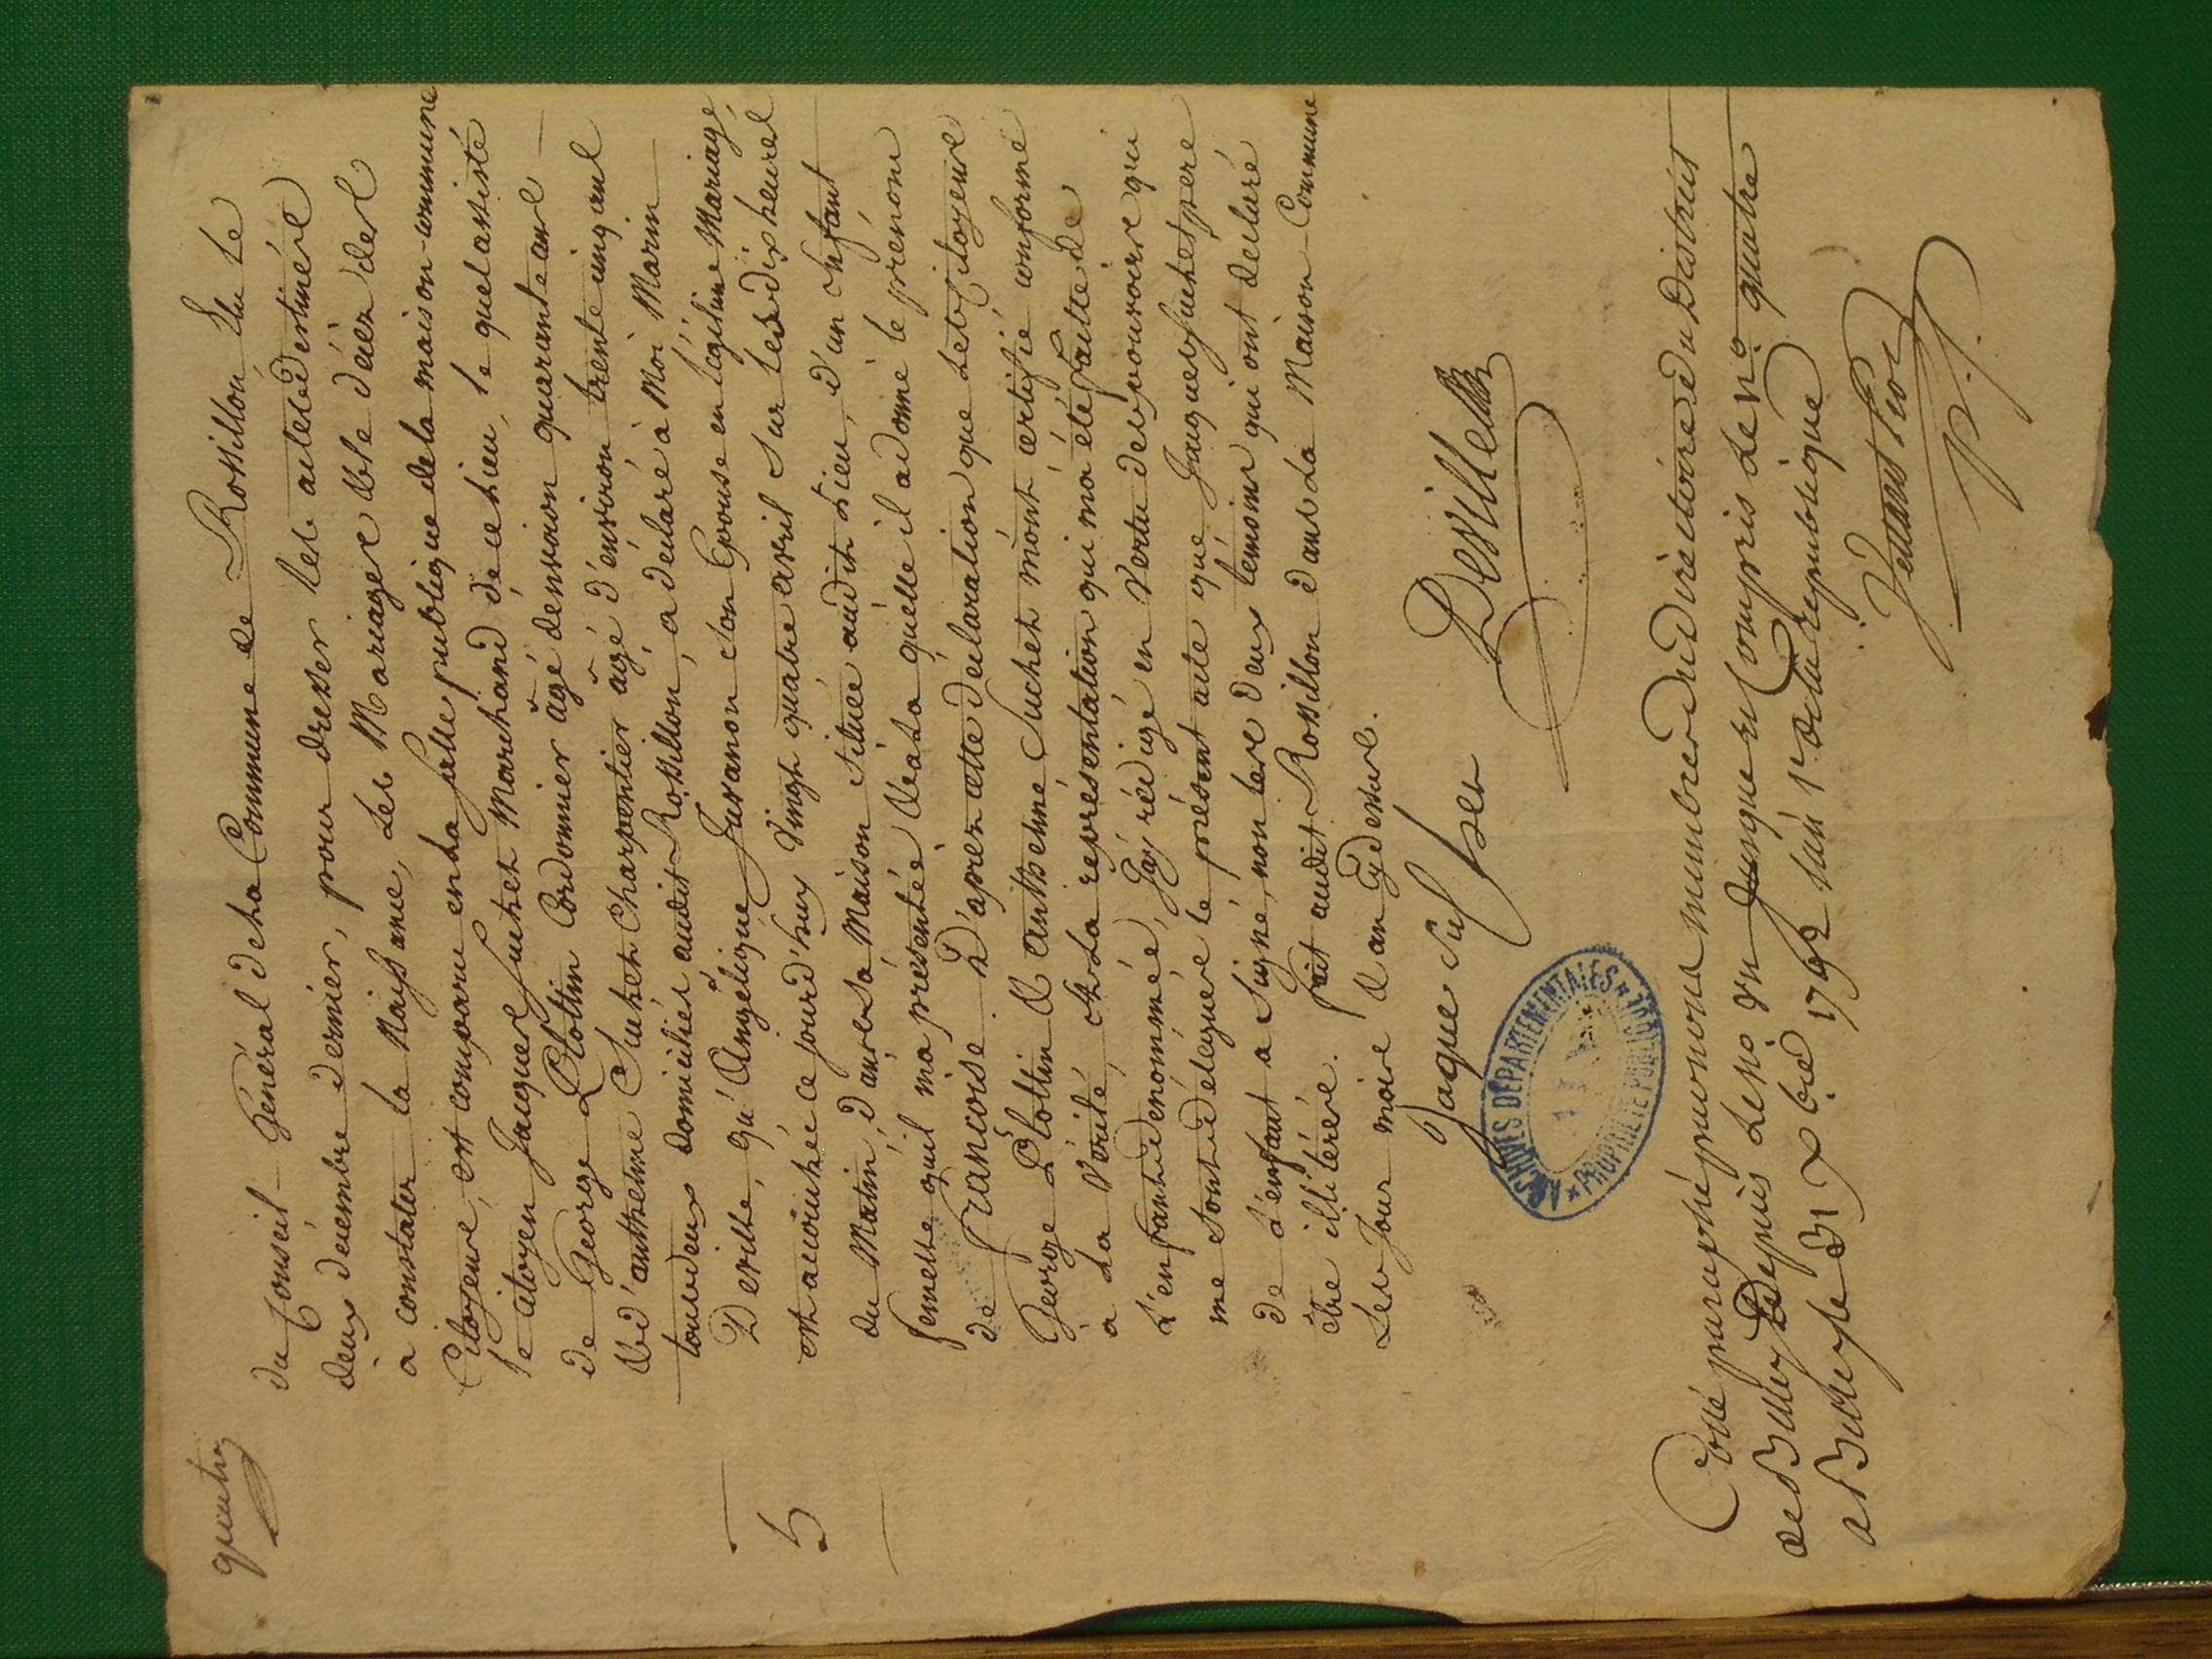 quatre
du Conseil-Général de la Commune de Rossillon Elu Le
deux decembre dernier, pour dresser les actes destinées
a constater la Naissance, Les Mariages & le décéz des
Citoyens, est comparu en la salle publique de la maison-commune
le citoyen Jacques Suchet Marchand de ce Lieu, le quel assisté
de George Plottin Cordonnier âgé denvison quarante ans
& d'anthelme Suchet Charpentier âgé d'environ trente cinq ans
tous deux domiciliés audit Rossillon, a declaré à Moi Marin
Deville, qu'Angélique Juvanon son Epouse en légitime Mariage
5
est accouchée ce jourd'huy Vingt quatre avril sur les dix heures
du Matin, dans sa Maison située audit Lieu, d'un Enfant
femelle quil m'a présentée & a la quelle il a donné le prénom
de francoise. D'apréz cette déclaration que les Citoyens
George Plottin & anthelme Suchet m'ont certifié conforme
a La Vérité, & La représentation qui m'a été faitte de
L'enfant dénommée, J'ay rédigé en Vertu des pouvoirs qui
me sont délégués le présent acte que Jacques Suchet pere
de L'enfant a Signé, non les deux témoins qui ont declaré
être illitérés. fait audit Rossillon dans La Maison-Commune
Les Jour mois & an Cydessus.
Jaque Suchet Deville
ARCHIVES DEPARTEMENTALES
PROPRIETE PUBLIQUE
Cotté paraphé par nous membre du Directoire du District
de Belley Depuis Le no. un Jusque et Compris Le no. quatre
a Belley le 31 Xbre 1792 lan 1er de la republique